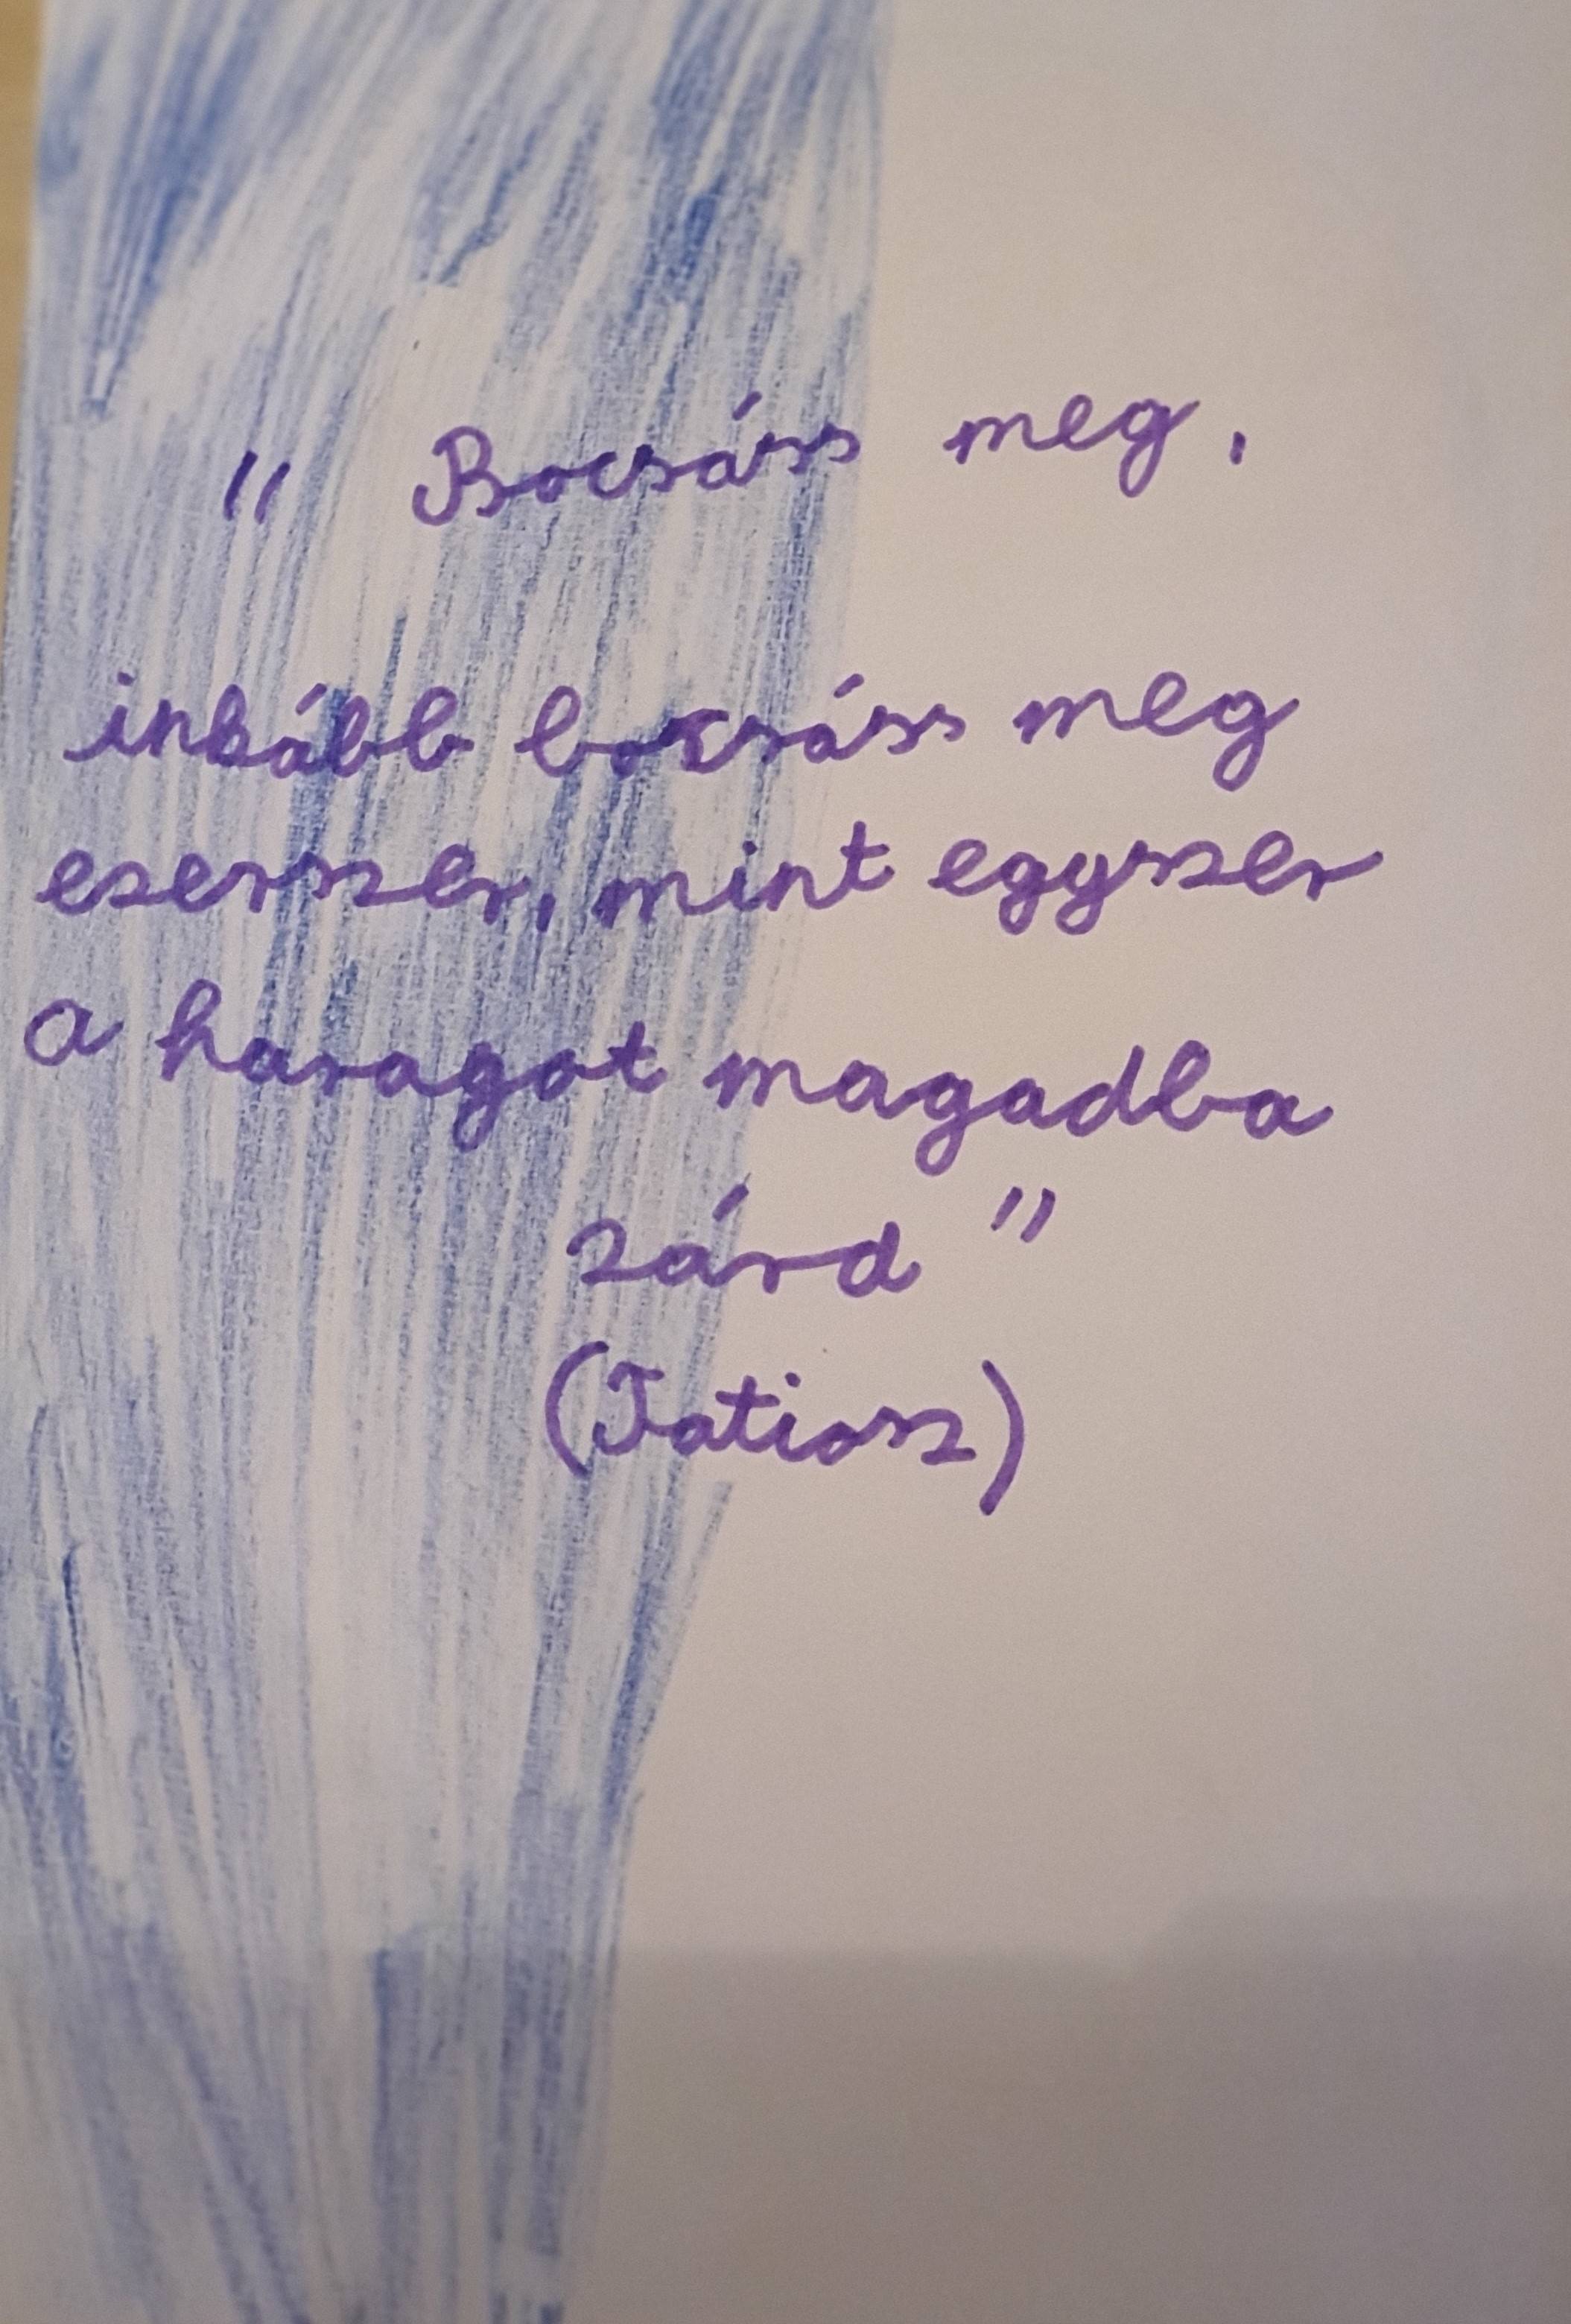 " Bocsáss meg,
inkább bocsáss meg
ezerszer, mint egyszer
a haragot magadba
zárd "
(Tatiosz)